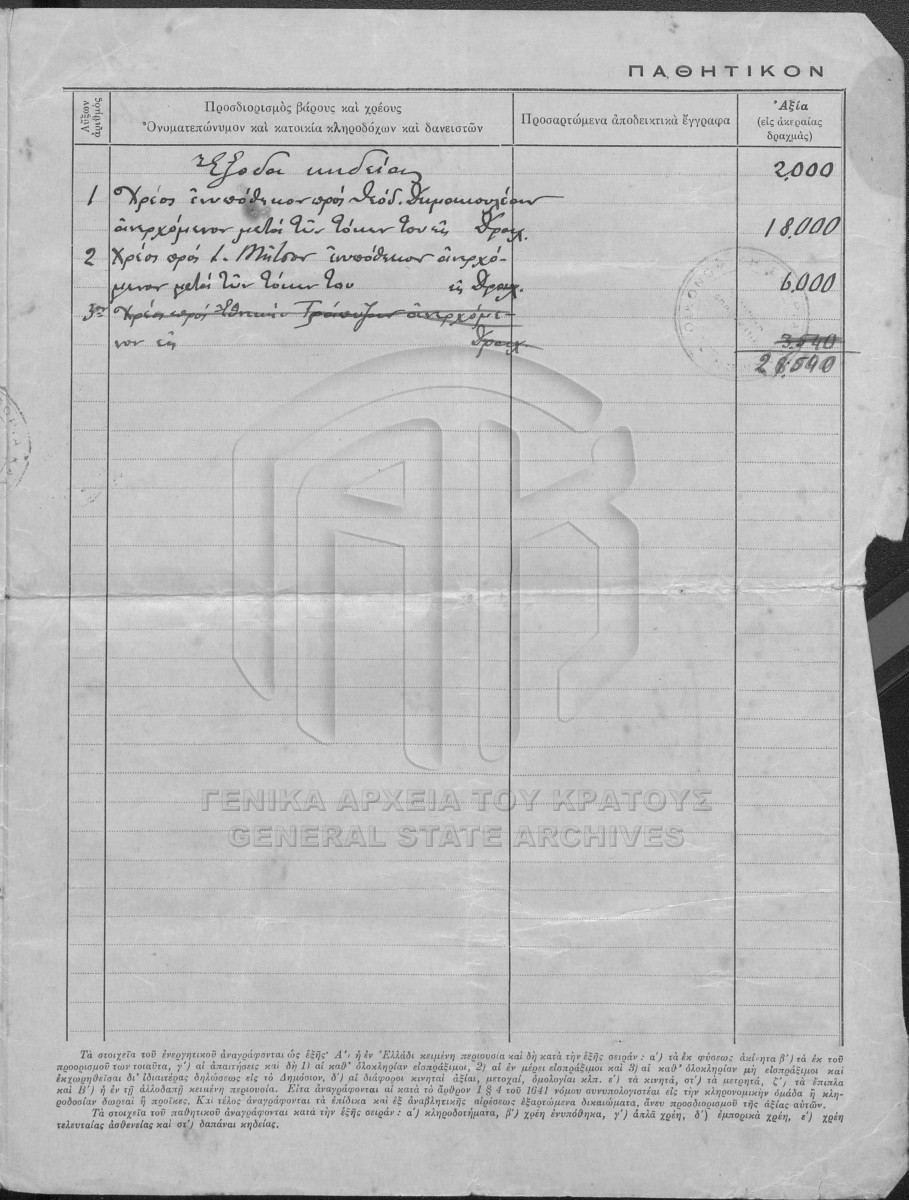 ΠΑΘΗΤΙΚΟΝ
Αὔξων ἀριθμὸς
Προσδιορισμὸς βάρους καὶ χρέους
Ὀνοματεπώνυμον καὶ κατοικία κληροδόχων καὶ δανειστῶν
Προσαρτώμενα ἀποδεικτικὰ ἔγγραφα
Ἀξία
(εἰς ἀκεραίας
δραχμάς)
Ἔξοδα κηδείας 2,000
1 Χρέος ἐνυπόθηκον πρός Θεόδ.
ἀνερχόμενον μετά τῶν τόκων του εἰς Δραχ. 18,000
2 Χρέος πρός Μῆτσον ἐνυπόθηκον ἀνερχό-
μενον μετά τῶν τόκων του εἰς Δραχ. 6,000
3 Χρέος πρός Ἐθνικήν Τράπεζαν ἀνερχόμε-
νον εἰς Δραχ 3.540
ΓΕΝΙΚΑ ΑΡΧΕΙΑ ΤΟΥ ΚΡΑΤΟΥΣ
GENERAL STATE ARCHIVES
Τὰ στοιχεῖα τοῦ ἐνεργητικοῦ ἀναγράφονται ὡς ἑξῆς· Α'. ἡ ἐν Ἑλλάδι κειμένη περιουσία καὶ δὴ κατὰ τὴν ἑξῆς σειράν : α') τὰ ἐκ φύσεως ἀκίνητα β') τὰ ἐκ τοῦ
προορισμοῦ των τοιαῦτα, γ') αἱ ἀπαιτήσεις καὶ δὴ 1) αἱ καθ' ὁλοκληρίαν εἰσπράξιμοι, 2) αἱ ἐν μέρει εἰσπράξιμοι καὶ 3) αἱ καθ' ὁλοκληρίαν μὴ εἰσπράξιμοι καὶ
ἐκχωρηθεῖσαι δι' ἰδιαιτέρας δηλώσεως εἰς τὸ Δημόσιον, δ') αἱ διάφοροι κινηταὶ ἀξίαι, μετοχαί, ὁμολογίαι κλπ. ε') τὰ κινητά, στ') τὰ μετρητά, ζ') τὰ ἔπιπλα
καὶ Β') ἡ ἐν τῇ ἀλλοδαπῇ κειμένη περιουσία. Εἶτα ἀναγράφονται αἱ κατὰ τὸ ἄρθρον 1 § 4 τοῦ 1641 νόμου συνυπολογιστέαι εἰς τὴν κληρονομικὴν ὁμάδα ἢ κλη-
ροδοσίαν δωρεαὶ ἢ προῖκες. Καὶ τέλος ἀναγράφονται τὰ ἐπίδικα καὶ ἐξ ἀναβλητικῆς αἱρέσεως ἐξαρτώμενα δικαιώματα, ἄνευ προσδιορισμοῦ τῆς ἀξίας αὐτῶν.
Τὰ στοιχεῖα τοῦ παθητικοῦ ἀναγράφονται κατὰ τὴν ἑξῆς σειράν : α') κληροδοτήματα, β') χρέη ἐνυπόθηκα, γ') ἁπλᾶ χρέη, δ') ἐμπορικὰ χρέη, ε') χρέη
τελευταίας ἀσθενείας καὶ στ') δαπάναι κηδείας.